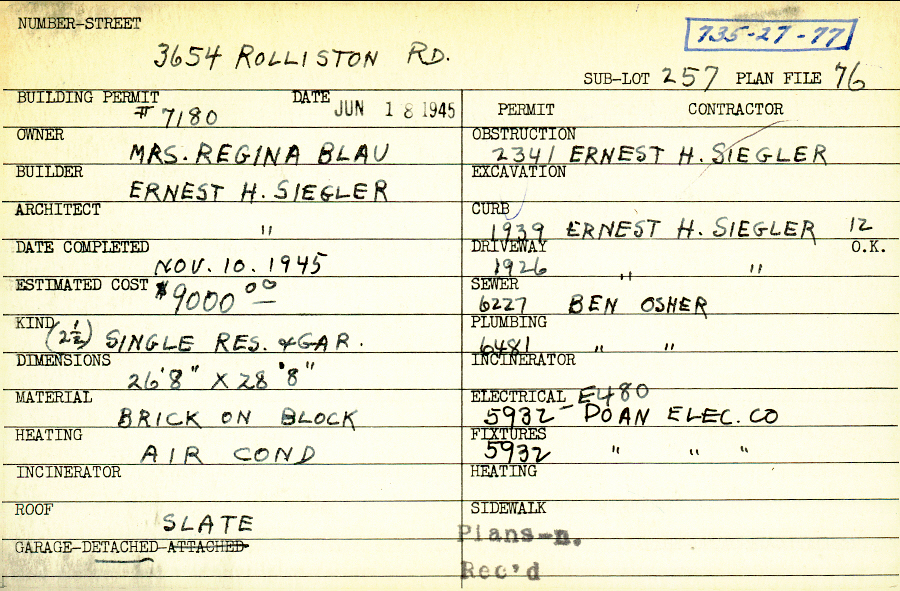 NUMBER-STREET
3654 ROLLISTON RD.
735-27-77
SUB-LOT 257 PLAN FILE 76
BUILDING PERMIT DATE
#7180 JUN 18 1945
OWNER
MRS. REGINA BLAU
BUILDER
ERNEST H. SIEGLER
ARCHITECT
"
DATE COMPLETED
NOV. 10. 1945
ESTIMATED COST $9000 00
KIND
(2½) SINGLE RES. & GAR.
DIMENSIONS
26'8" X 28'8"
MATERIAL
BRICK ON BLOCK
HEATING
AIR COND
INCINERATOR
ROOF
SLATE
GARAGE-DETACHED-ATTACHED-
PERMIT CONTRACTOR
OBSTRUCTION
2341 ERNEST H. SIEGLER
EXCAVATION
CURB
1939 ERNEST H. SIEGLER 12
DRIVEWAY O.K.
1926 " "
SEWER
6227 BEN OSHER
PLUMBING
6481 " "
INCINERATOR
ELECTRICAL E480
5932 - DOAN ELEC. CO
FIXTURES
5932 " " "
HEATING
SIDEWALK
Plans-n.
Rec'd